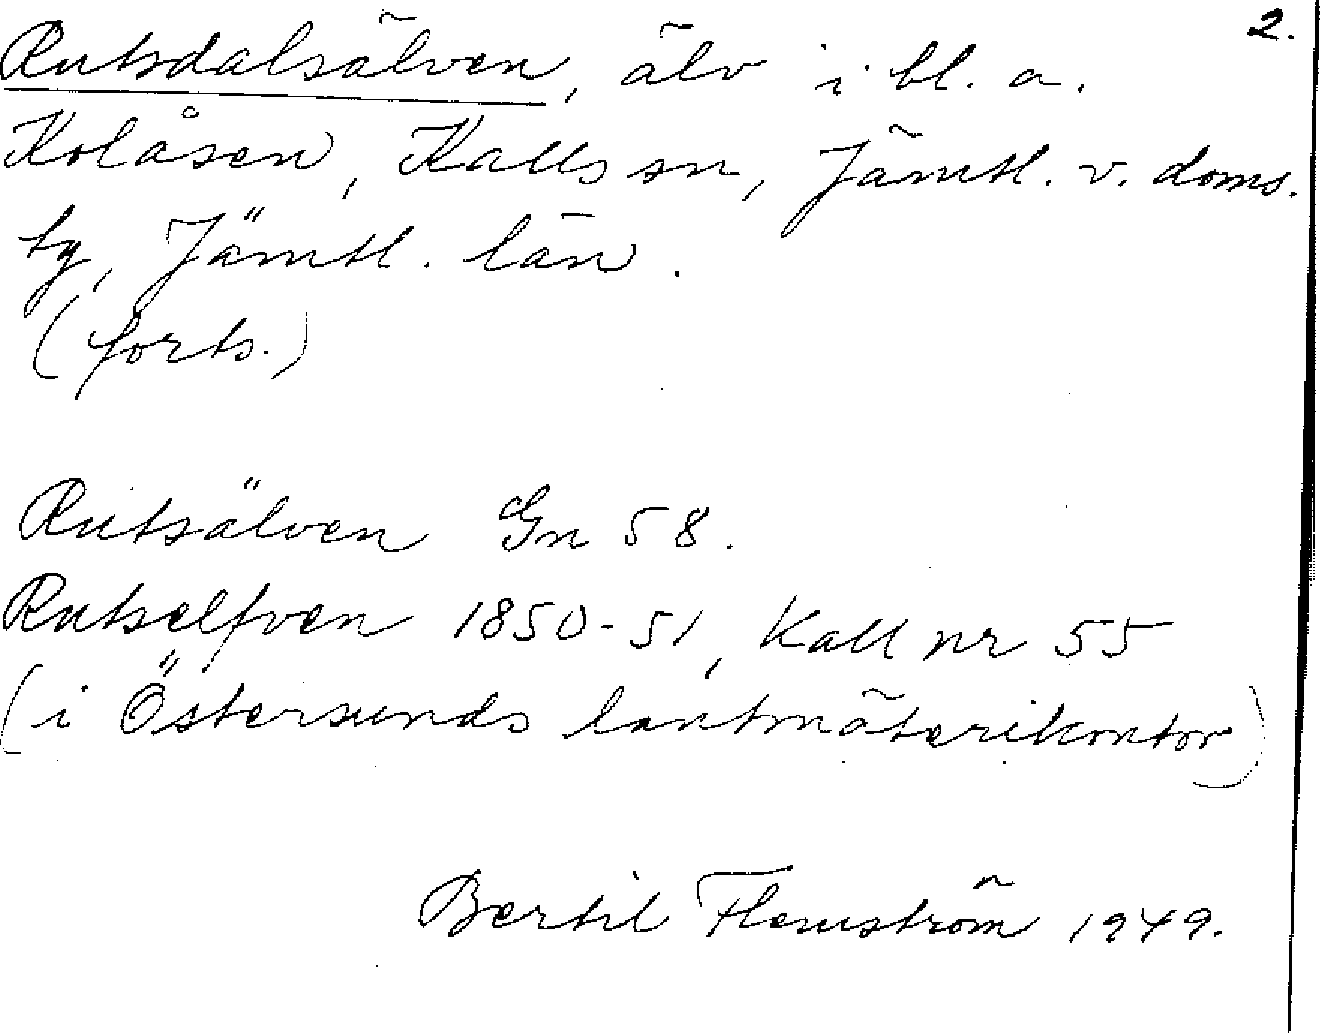 2.
Rutsdalsälven, älv i bl. a.
Kolåsen, Kalls sn, Jämtl. v. doms.
tg, Jämtl. län.
(forts.)
Rutsälven Gn 58.
Rutselfven 1850-51, Kall nr 55
(i Östersunds lantmäterikontor)
Bertil Flemström 1949.